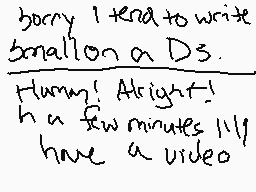 Sorry I tend to write
small on a DS.
Humm! Alright!
In a few minutes I'll
have a video